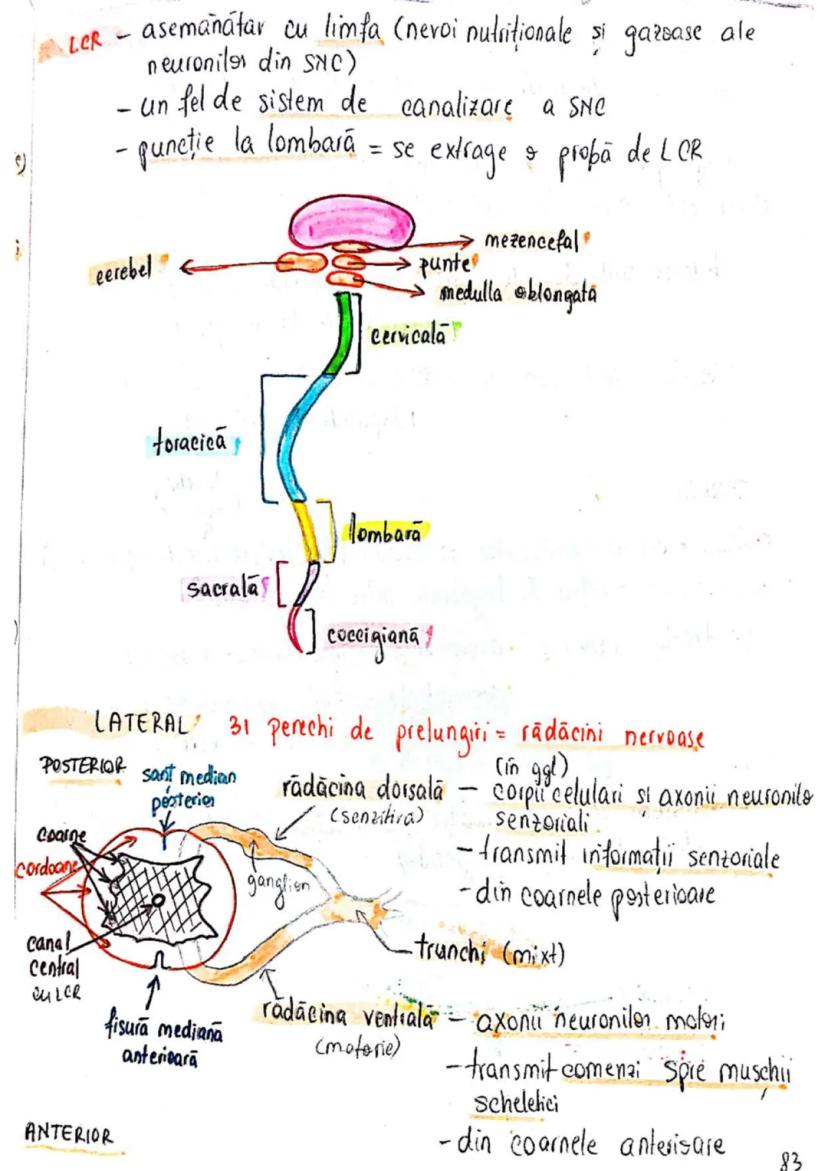 LCR - asemănător cu limfa (nevoi nutriționale și gazoase ale
neuronilor din SNC)
- un fel de sistem de canalizare a SNC
- puncție la lombară = se extrage o probă de LCR
mezencefal
cerebel
punte
medulla oblongată
cervicală
toracică
lombară
sacrală
coccigiană
LATERAL 31 perechi de prelungiri = rădăcini nervoase
POSTERIOR
șanț median
posterior
rădăcina dorsală
(senzitivă)
(în ggl)
- corpii celulari și axonii neuronilo
senzoriali
- transmit informații senzoriale
- din coarnele posterioare
coarne
cordoane
ganglion
canal
central
cu LCR
trunchi (mixt)
fisură mediană
anterioară
rădăcina ventrală
(motorie)
- axonii neuronilor motori
- transmit comenzi spre mușchii
scheletici
- din coarnele anterioare
ANTERIOR
83